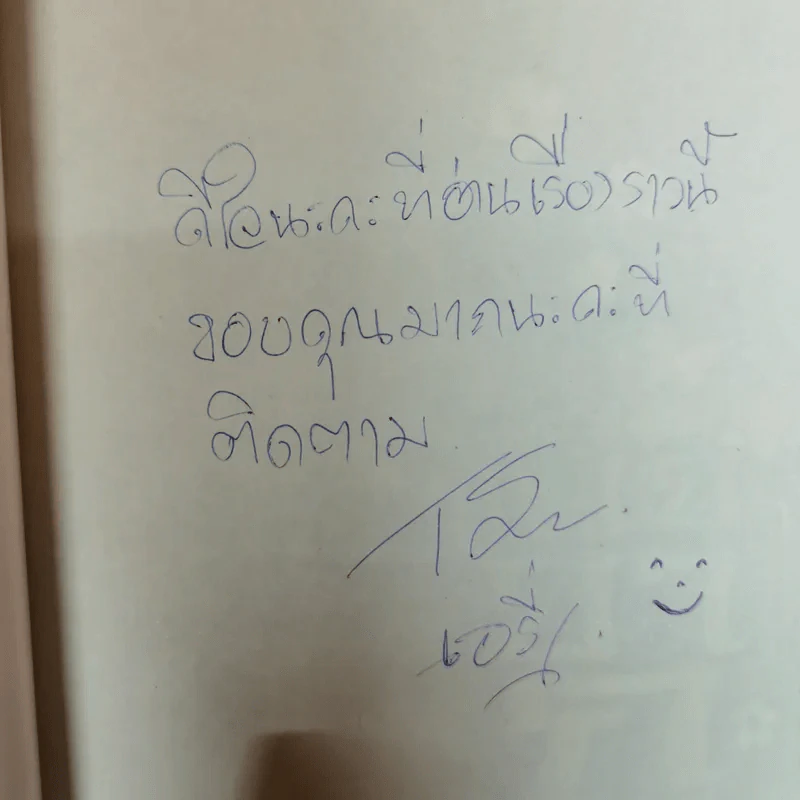 ดีใจนะคะที่อ่านเรื่องราวนี้
ขอบคุณมากนะคะที่
ติดตาม